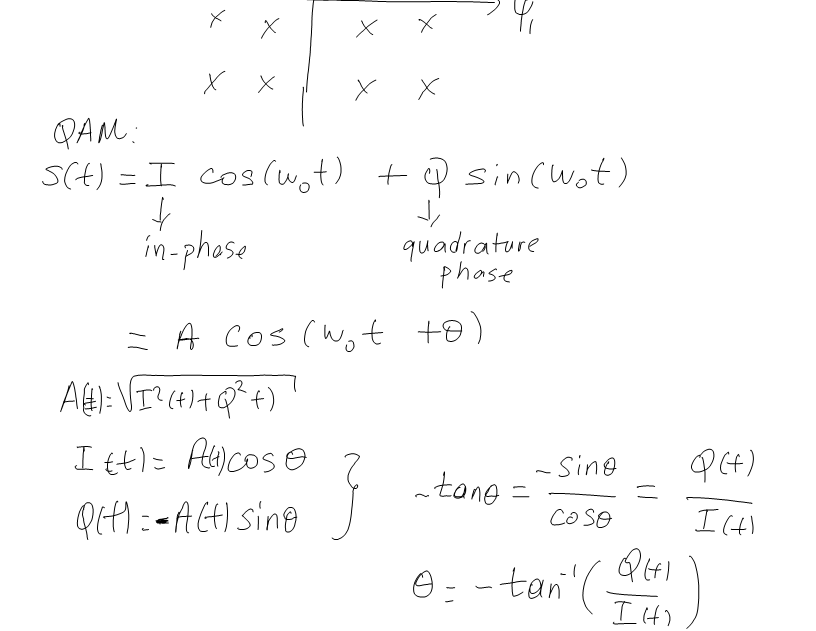 x x x x ψ₁
x x x x
QAM:
S(t) = I cos(w₀t) + Q sin(w₀t)
↓ ↓
in-phase quadrature
phase
= A cos(w₀t + θ)
A(t) = √(I²(t) + Q²t)
I(t) = A(t) cos θ
Q(t) = -A(t) sin θ
~tan θ = ~sin θ / cos θ = Q(t) / I(t)
θ = -tan⁻¹(Q(t) / I(t))